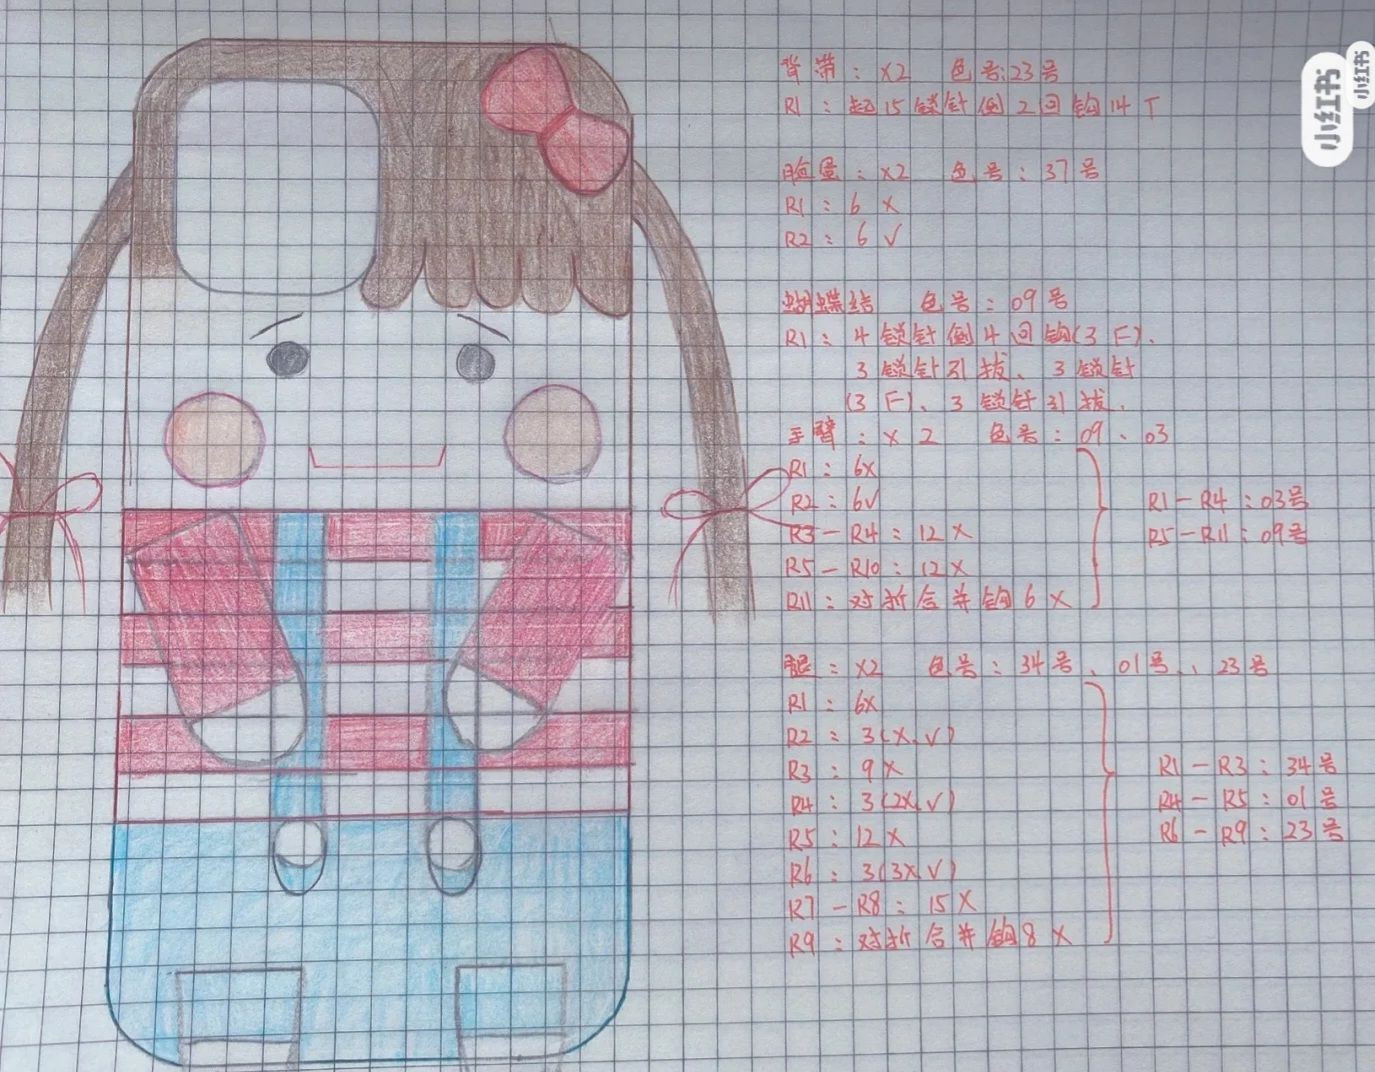 背带：×2 色号：23号
R1：起15锁针倒2回钩14T
脸蛋：×2 色号：37号
R1：6X
R2：6V
蝴蝶结 色号：09号
R1：4锁针倒4回钩(3F)、
3锁针引拔、3锁针
(3F)、3锁针引拔.
手臂：×2 色号：09、03
R1：6X
R2：6V
R3－R4：12X
R5－R10：12X
R11：对折合并钩6X
R1－R4：03号
R5－R11：09号
腿：×2 色号：34号、01号、23号
R1：6X
R2：3(X,V)
R3：9X
R4：3(2X,V)
R5：12X
R6：3(3X,V)
R7－R8：15X
R9：对折合并钩8X
R1－R3：34号
R4－R5：01号
R6－R9：23号
小红书
小红书